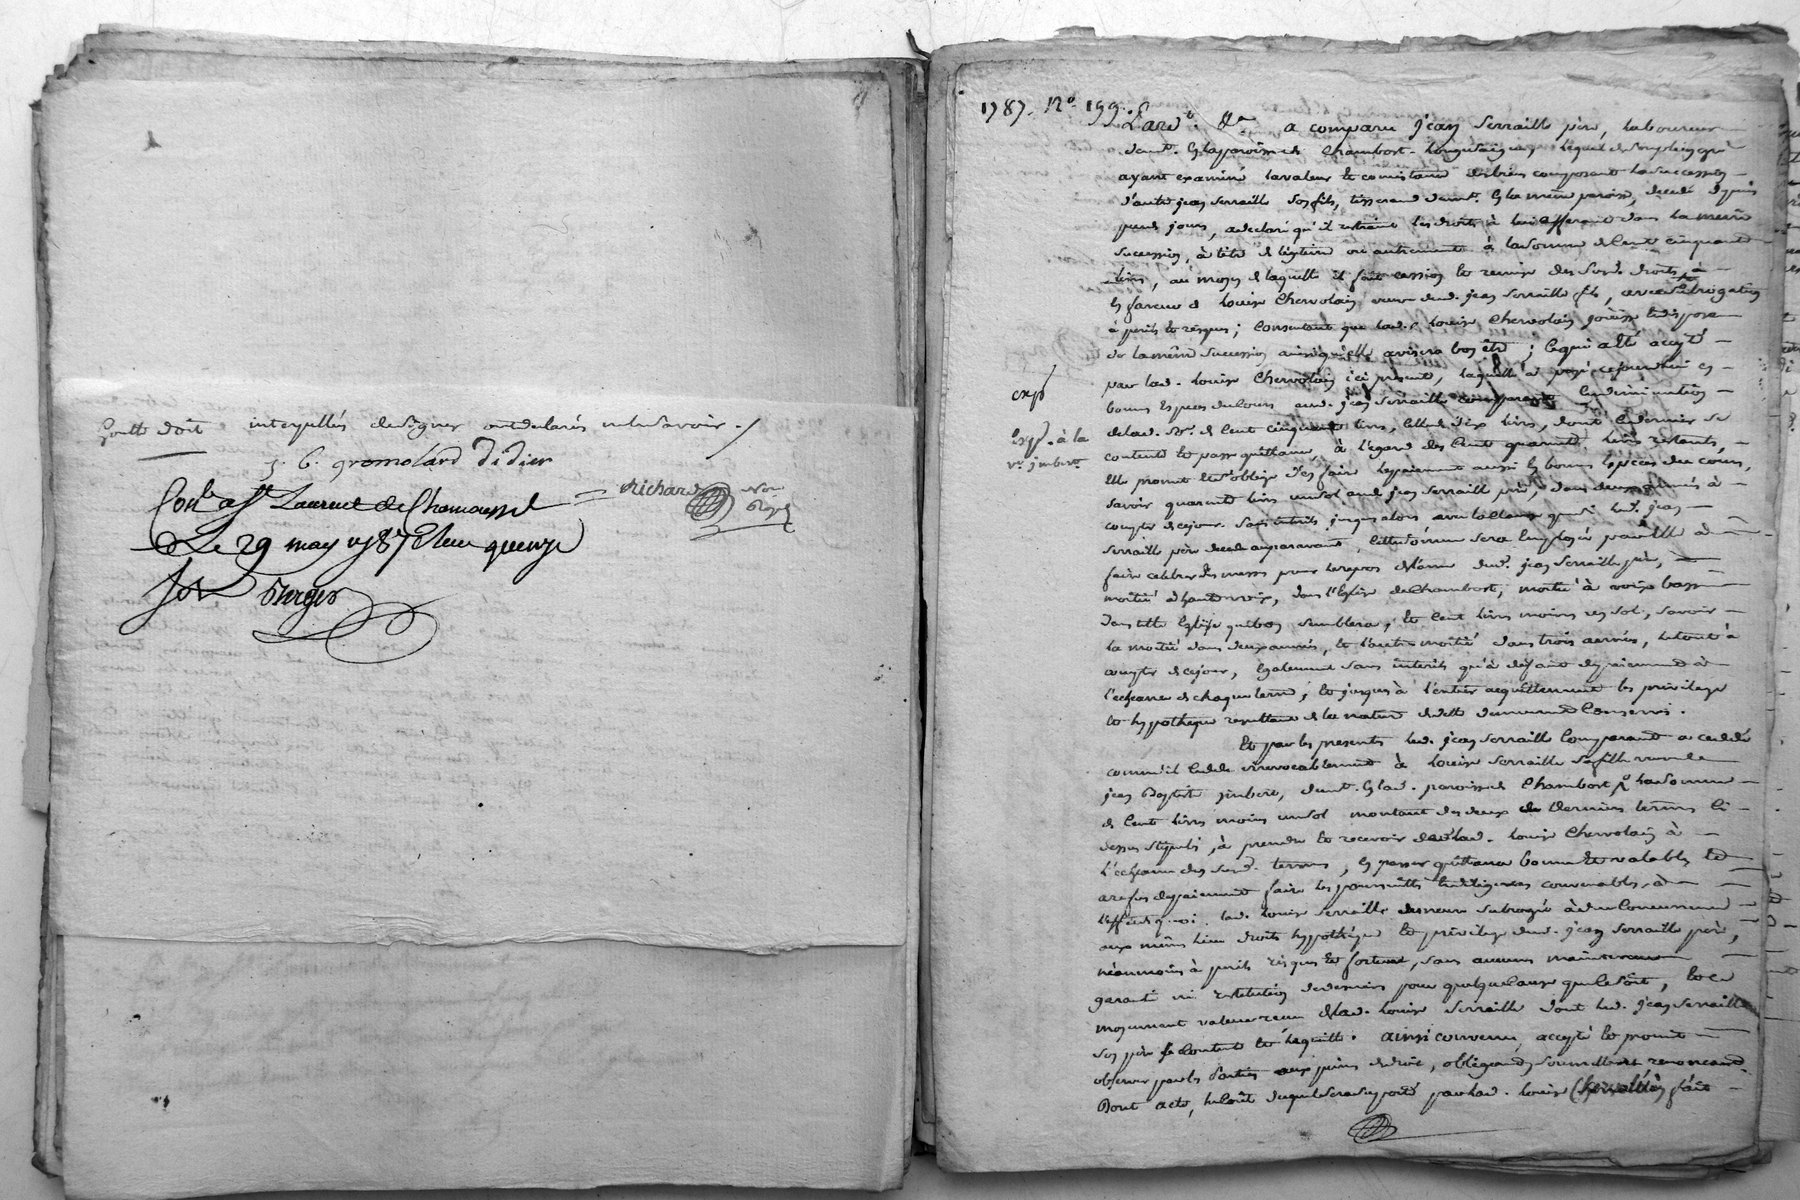 Goutte doit interpellés de signer ont declarés ne le savoir ./
j. C. gromolard Didier
Richard Not Royal
Con.lé à St Laurent de Chamousset
Le 29 may 1787 Reçu quinze
sols Berger
1787. N.o 199.
Pardt. &a a comparu jean Serraille père, laboureur
demt. en la paroisse de Chambost-Longesaigne, lequel de son plein gré
ayant examiné la valeur et consistance des biens composant la succession
d'autre jean Serraille son fils, tisserand demt. en la même paroisse, décédé depuis
peu de jours, a declaré qu'il restraint les droits à lui afferant dans la meme
succession, à titre de légitime ou autrement à la somme de Cent cinquante
livres, au moyen de laquelle il fait cession et remise des susd. droits à
en faveur de Louise Chervolain veuve dud. jean Serraille fils, avec subrogation
à perils et risques ; Consentant que lad. Louise Chervolain jouisse et dispose
de la même succession ainsi qu'elle avisera bon être ; ce qui a été accepté
par lad. Louise Chervolain ici présente, laquelle a payé cejourd'hui en
exp.
bonnes Especes du Cours aud. jean Serraille comparant En diminution
de lad. So. de Cent cinquante livres, celle de dix livres, dont ce dernier se
Exp. à la
ve. jmbert
contente et passe quittance, à l'égard des Cent quarante livres restants,
Elle promet et s'oblige d'en faire le paiement aussi en bonnes especes du cours,
savoir quarante livres un sol aud. jean Serraille père, dans deux années à
compter de ce jour sans interets jusqu'alors avec la clause que si led. jean
Serraille père décede auparavant, cette somme sera Employée par elle à
faire celebrer des messes pour le repos de l'ame dud. jean Serraille père,
moitié à haute voix, dans l'Eglise de Chambost, moitié à voix basse
dans telle Eglise que bon semblera ; et Cent livres moins un sol, savoir
la moitié dans deux années, et l'autre moitié dans trois années, le tout à
compter de ce jour, Egalement sans interets qu'à defaut de paiement à
l'echeance de chaque terme ; et jusques à l'entier acquittement les privilege
et hypotheque resultant de la nature de dette demeurent Conservés.
Et par les presentes led. jean Serraille Comparant a cedé
comme il Cede irrevocablement à Louise Serraille sa fille veuve de
jean Baptiste jmbert, demt. en lad. paroisse de Chambost la somme
de Cent livres moins un sol montant des deux derniers termes ci-
dessus stipulés, à prendre et recevoir de lad. Louise Chervolain à
l'echeance des susd. termes, en passer quittance bonne et valable, et
à refus de paiement faire les poursuites et diligences convenables, à
l'effet de quoi lad. Louise Serraille demeure subrogée à due Concurrence
aux mêmes lieu droits hypotheque et privilege dud. jean Serraille père,
néanmoins à perils risques et fortune, sans aucune maintenue
garantie ni restitution de deniers pour quelque cause que ce soit, et ce
moyennant valeur reçue de lad. Louise Serraille dont led. jean Serraille
son père se contente et l'en quitte. ainsi convenu, accepté et promis
observer par les Parties aux peines de droit, obligeant, soumettant renonçant.
Dont acte, le Coût duquel sera supporté par lad. Louise Chervolain fait